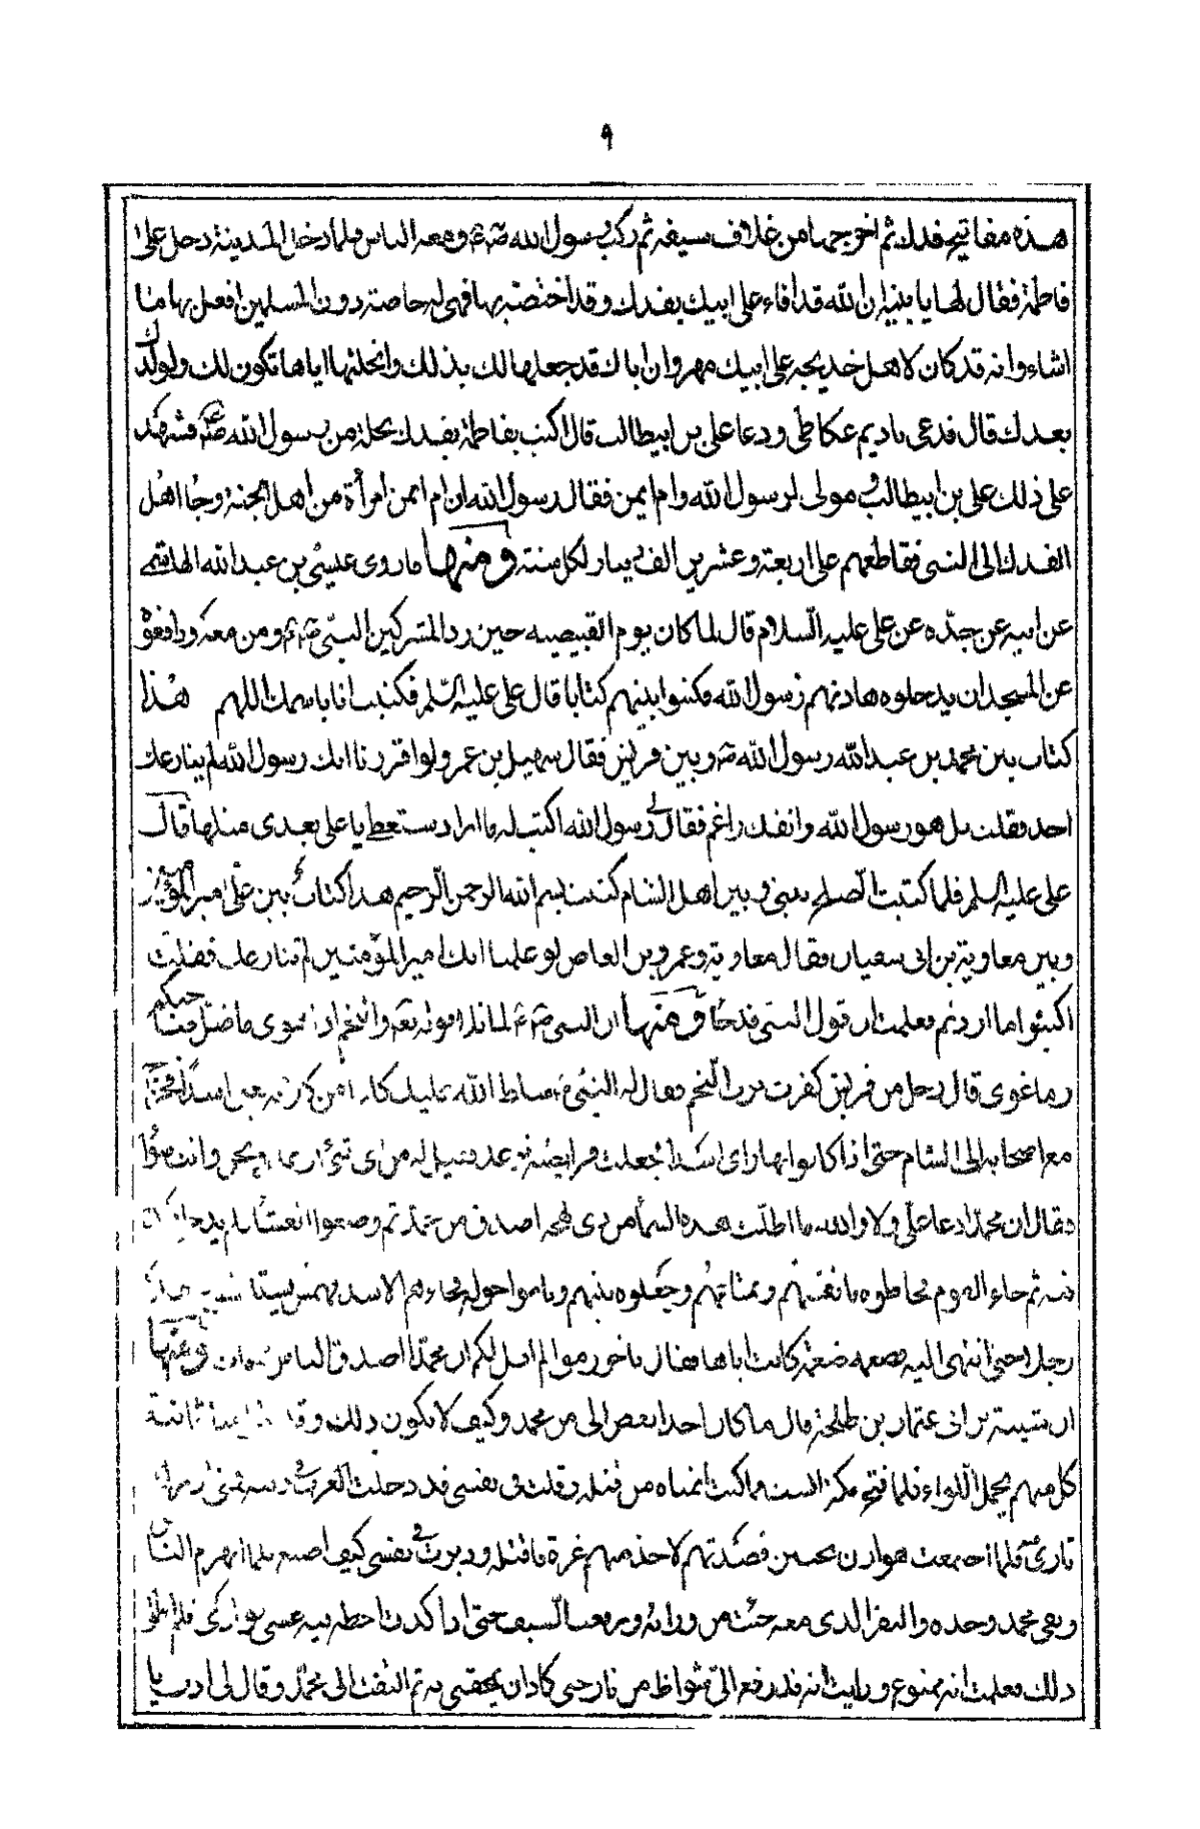 ٩
هذه مفاتيح فدك ثم اخرجها من غلاف سيفه ثم ركب رسول الله ص ع ومعه الناس فلما دخل المدينة دخل على
فاطمة فقال لها يا بنية ان الله قد افاء على ابيك بفدك وقد اختصه بها فهى له خاصة دون المسلمين افعل بها ما
اشاء وانه قد كان لاهل خديجة على ابيك مهر وان اباك قد جعلها لك بذلك وانحلتها اياها تكون لك ولولدك
بعدك قال فدعى باديم عكاظى ودعا على بن ابيطالب قال اكتب بفاطمة بفدك نحلة من رسول الله ص فشهد
على ذلك على بن ابيطالب و مولى لرسول الله وام ايمن فقال رسول الله ان ام ايمن امرأة من اهل الجنة وجاا اهل
الفدك الى النبى فقاطعهم على اربعة وعشرين الف دينار لكل سنة ومنها ما روى عيسى بن عبدالله الهاشمى
عن ابيه عن جده عن على عليه السلام قال لما كان يوم القبيصيه حين رد المشركين النبى ص ع ومن معه ودافعوه
عن المسجد ان يدخلوه هادنهم رسول الله فكتبوا بينهم كتابا قال على عليه السلم فكنت انا باسمك اللهم هذا
كتاب بين محمد بن عبدالله رسول الله ص وبين قريش فقال سهيل بن عمرو لو اقررنا انك رسول الله لم ينازعك
احد فقلت بل هو رسول الله وانفك راغم فقال لى رسول الله اكتب له ما اراد ستعطى يا على بعدى مثلها قال
على عليه السلم فلما كتبت الصلح بينى وبين اهل الشام كتبت بسم الله الرحمن الرحيم هذا كتاب بين على امير المؤمنين
وبين معاوية بن ابى سفيان فقال معاوية وعمرو بن العاص لو علمنا انك امير المؤمنين لم تنازعك فقلت
اكتبوا ما اردتم فعلمت ان قول النبى قد جا ومنها ان النبى ص ع لما تلا والنجم اذا هوى ما ضل صاحبكم
وما غوى قال رجل من قريش كفرت برب النجم فقال له النبى سلط الله عليك
مع اصحابه الى الشام حتى اذا كانوا بها راى اسدا فجعلت فرايصه ترعد فقيل له من اى شئ ونحن وانت سواء
فقال ان محمدا دعا على ولا والله ما اظلت هذه السمأ من ذى لهجه اصدق من محمد ثم وضعوا العشأ فلم يدخل
ثم جاء القوم فحاطوه بانفسهم ومتاعهم وجعلوه بينهم وناموا حوله فجاءهم الاسد
رجلا حتى انتهى اليه فضغمه ضغمة كانت اياها فقال باخر رمق الم اقل لكم ان محمدا اصدق الناس ومنها
ان شيبة بن ابى عثمان بن طلحة قال ما كان احد ابغض الى من محمد وكيف لا يكون ذلك وقد ثمانية
كل منهم يحمل اللواء فلما فتح مكة ايست مما كنت اتمناه من قتله وقلت فى نفسى قد دخلت العرب فى دينه
ثارى فلما اجتمعت هوازن بحنين قصدتهم لاخذ منهم غرة فاقتله ودبرت فى نفسى كيف اصنع فلما انهزم الناس
وبقى محمد وحده والنفر الذى معه جئت من ورائه ورفعت السيف حتى اذا كدت احطه
ذلك فعلمت انه ممنوع ورايت انه قد رفع الى شواظ من نار حتى كاد ان يمحقنى ثم التفت الى محمد وقال لى ادن يا